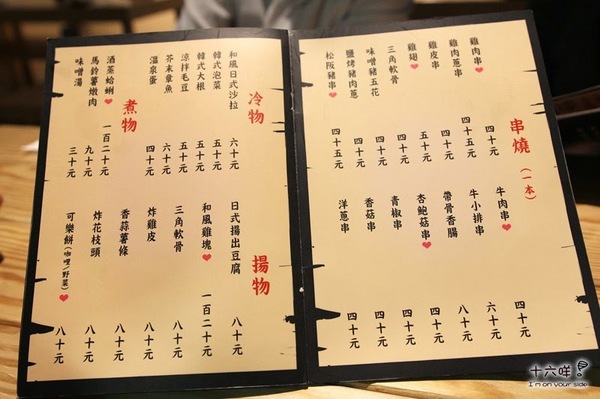 串燒(一本)
雞肉串 四十元
雞肉蔥串 四十五元
雞皮串 四十元
雞翅 五十元
三角軟骨 四十元
味噌豬五花 四十元
鹽烤豬肉蔥 四十元
松阪豬串 四十五元
牛肉串 四十元
牛小排串 六十元
帶骨香腸 八十元
杏鮑菇串 四十元
青椒串 四十元
香菇串 四十元
洋蔥串 四十元
冷物
和風日式沙拉 六十元
韓式泡菜 五十元
韓式大根 五十元
涼拌毛豆 五十元
芥末章魚 六十元
溫泉蛋 四十元
煮物
酒蒸蛤蜊 一百二十元
馬鈴薯燉肉 九十元
味噌湯 三十元
揚物
日式揚出豆腐 八十元
和風雞塊 一百二十元
三角軟骨 八十元
炸雞皮 八十元
香蒜薯條 八十元
炸花枝頭 八十元
可樂餅(咖哩/野菜) 八十元
十六咩
I'm on your side